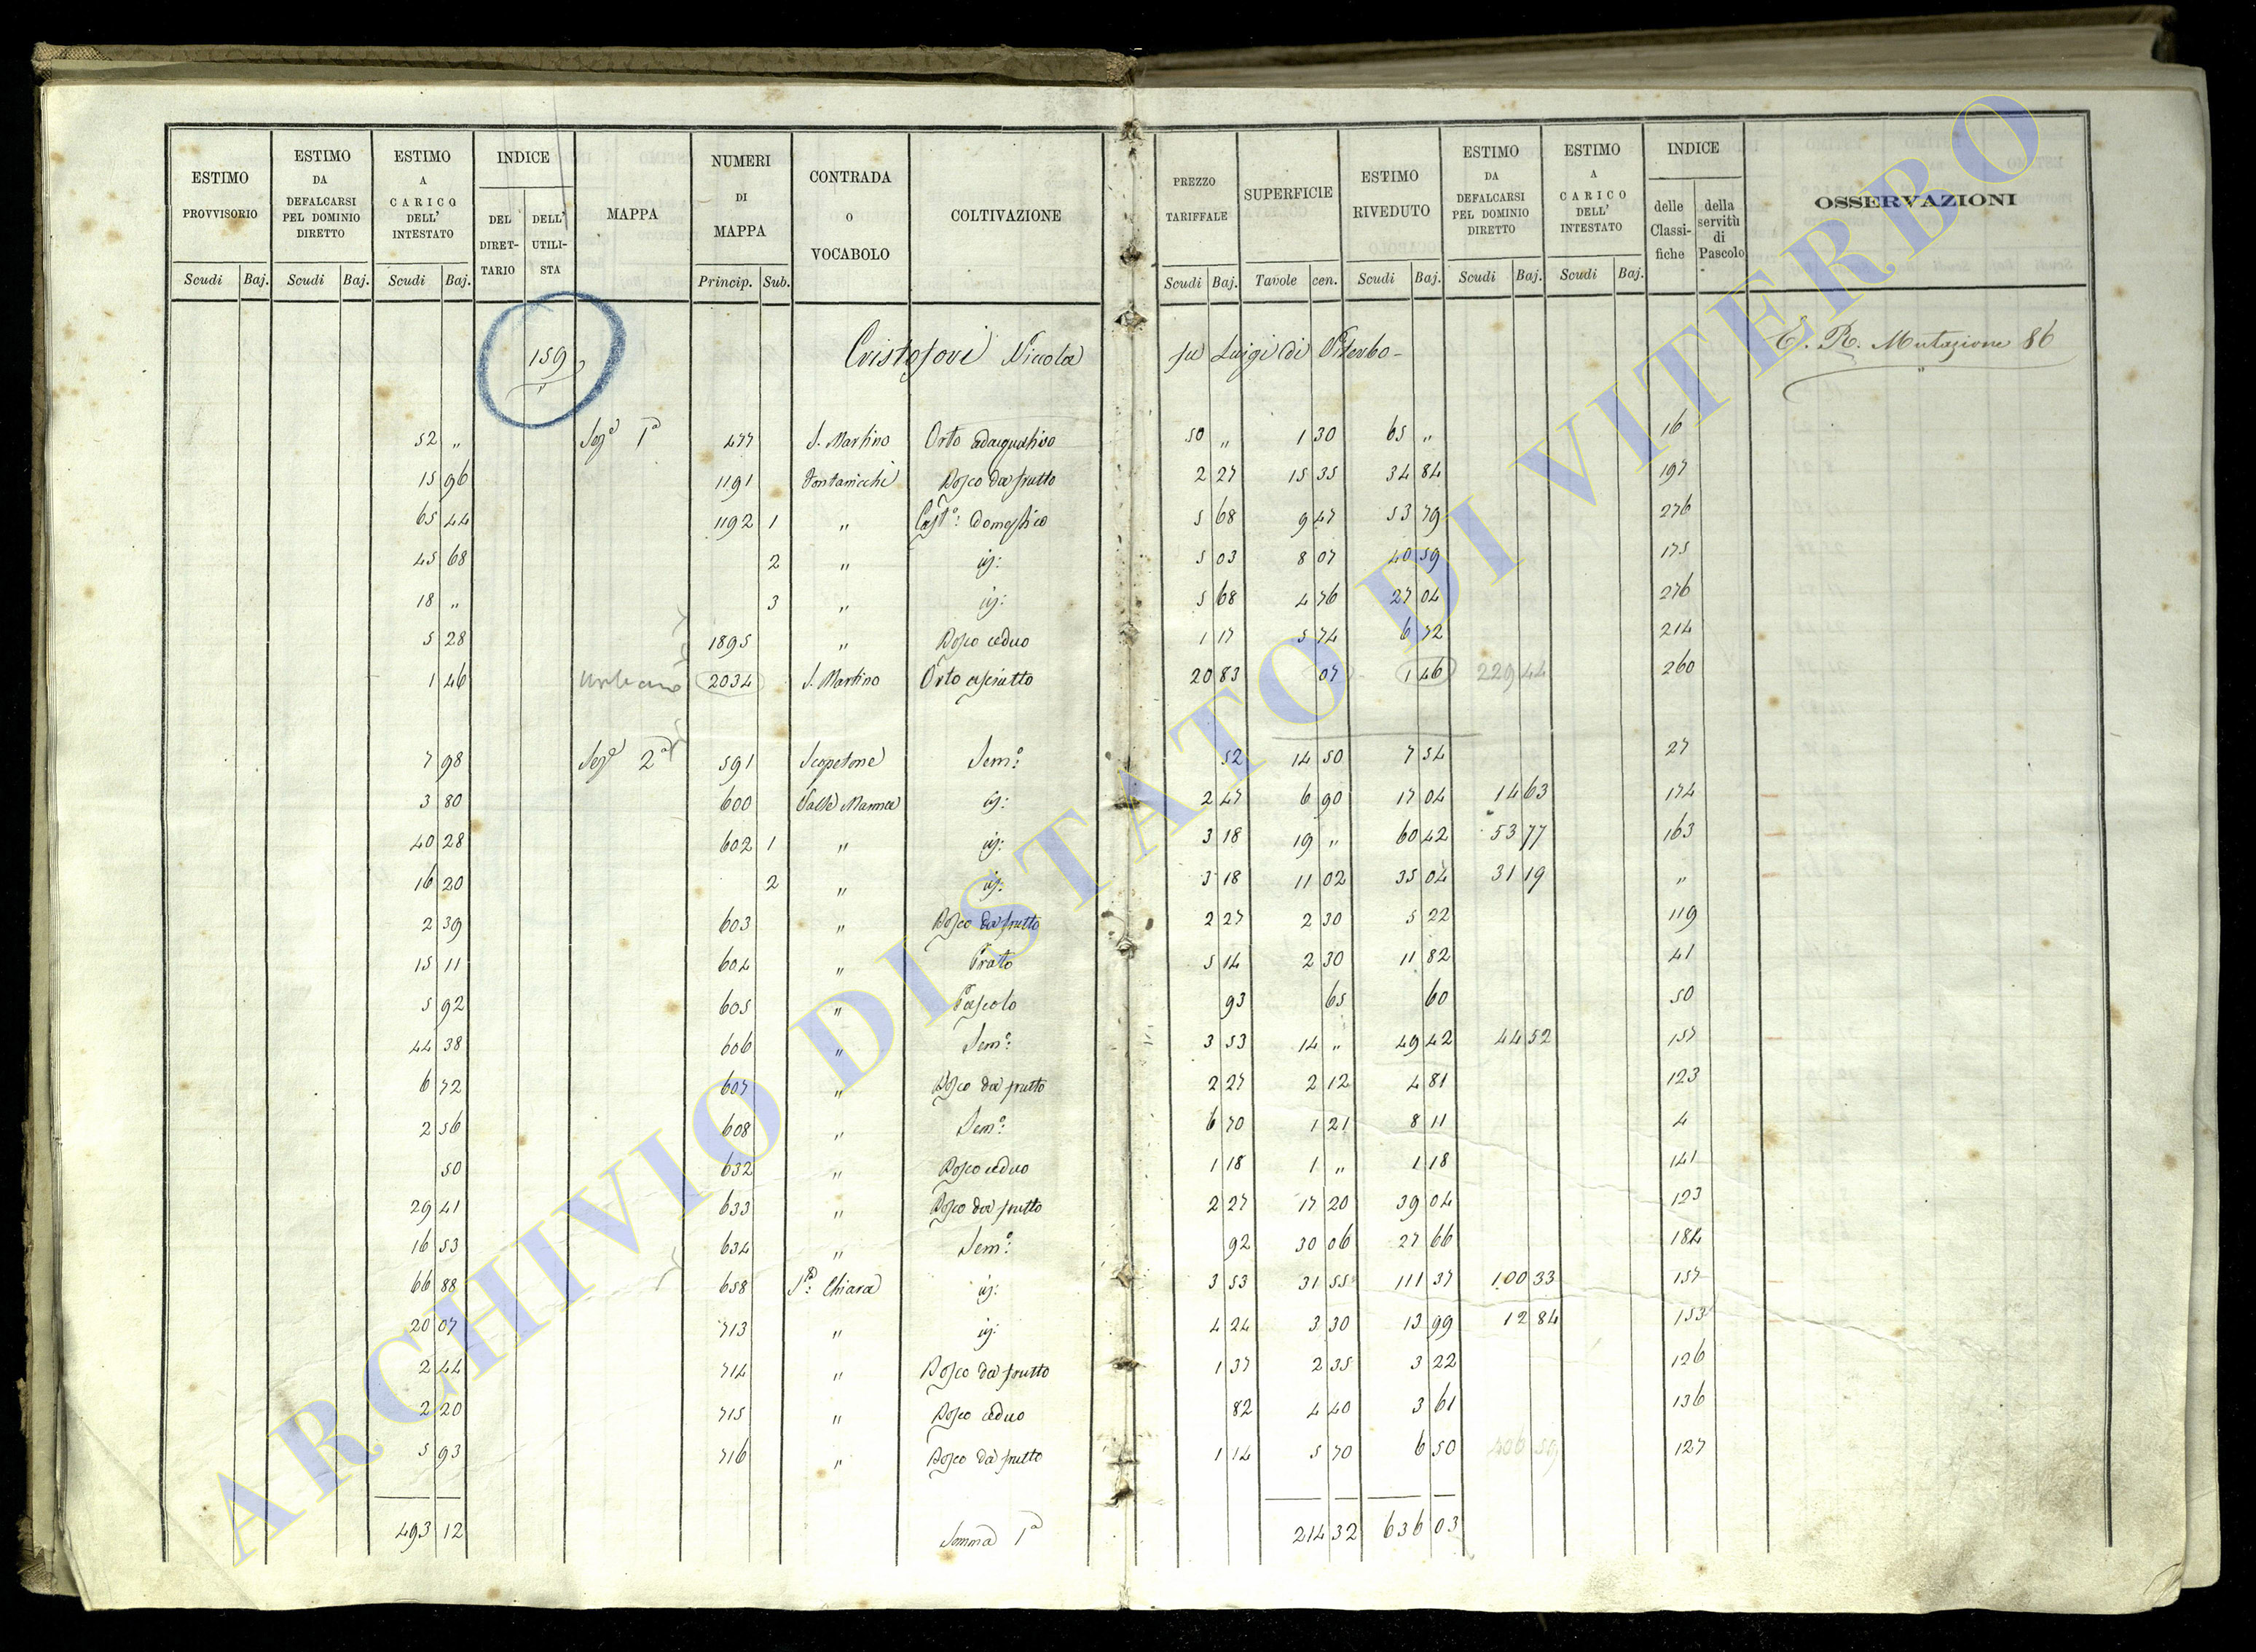 ESTIMO PROVVISORIO | ESTIMO DA DEFALCARSI PEL DOMINIO DIRETTO | ESTIMO A CARICO DELL' INTESTATO | INDICE | MAPPA | NUMERI DI MAPPA | CONTRADA O VOCABOLO | COLTIVAZIONE | PREZZO TARIFFALE | SUPERFICIE | ESTIMO RIVEDUTO | ESTIMO DA DEFALCARSI PEL DOMINIO DIRETTO | ESTIMO A CARICO DELL' INTESTATO | INDICE | OSSERVAZIONI
DEL DIRETTARIO | DELL' UTILISTA | delle Classifiche | della servitù di Pascolo
Scudi | Baj. | Scudi | Baj. | Scudi | Baj. | Princip. | Sub. | Scudi | Baj. | Tavole | cen. | Scudi | Baj. | Scudi | Baj. | Scudi | Baj.
159 Cristofori Niccola fu Luigi di Viterbo E. R. Mutazione 86
52 „ Sez.e 1a 477 S. Martino Orto adacquativo 50 „ 1 30 65 „ 16
15 96 1191 Fontanicchie Bosco da frutto 2 27 15 35 34 84 197
65 44 1192 1 „ Cast.o: domestico 5 68 9 47 53 79 276
45 68 2 „ id: 5 03 8 07 40 59 175
18 „ 3 „ id: 5 68 4 76 27 04 276
5 28 1895 „ Bosco ceduo 1 17 5 74 6 72 214
1 46 urbano 2034 S. Martino Orto asciutto 20 83 07 1 46 229 44 260
7 98 Sez.e 2a 591 Scopetone Sem.o: 52 14 50 7 54 27
3 80 600 Valle Manna id: 2 47 6 90 17 04 14 63 174
40 28 602 1 „ id: 3 18 19 „ 60 42 53 77 163
16 20 2 „ id: 3 18 11 02 35 04 31 19 „
2 39 603 „ Bosco da frutto 2 27 2 30 5 22 119
15 11 604 „ Prato 5 14 2 30 11 82 41
5 92 605 „ Pascolo 93 65 60 50
44 38 606 „ Sem.o: 3 53 14 „ 49 42 44 52 157
6 72 607 „ Bosco da frutto 2 27 2 12 4 81 123
2 56 608 „ Sem.o: 6 70 1 21 8 11 4
50 632 „ Bosco ceduo 1 18 1 „ 1 18 141
29 41 633 „ Bosco da frutto 2 27 17 20 39 04 123
16 53 634 „ Sem.o: 92 30 06 27 66 184
66 88 658 S.a: Chiara id: 3 53 31 55 111 37 100 33 157
20 07 713 „ id: 4 24 3 30 13 99 12 84 153
2 44 714 „ Bosco da frutto 1 37 2 35 3 22 126
2 20 715 „ Bosco ceduo 82 4 40 3 61 136
5 93 716 „ Bosco da frutto 1 14 5 70 6 50 406 59 127
493 12 Somma 1a 214 32 636 03
ARCHIVIO DI STATO DI VITERBO